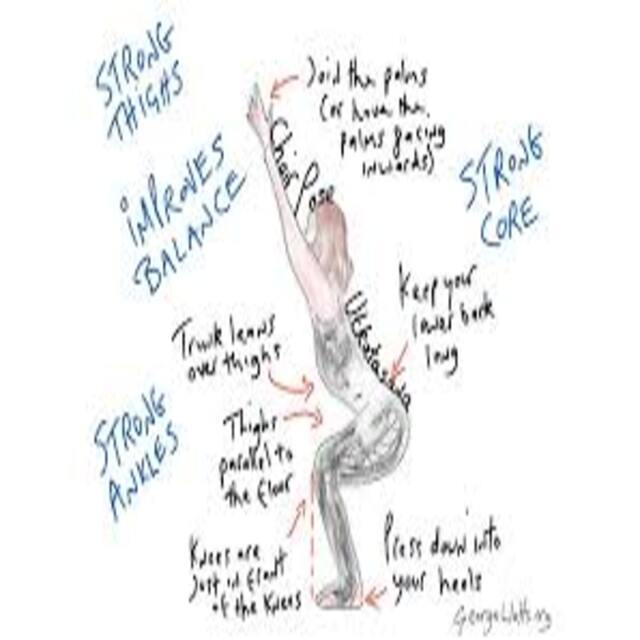 STRONG
THIGHS
Join the palms
(or have the
palms facing
inwards)
Chair Pose
IMPROVES
BALANCE
STRONG
CORE
Keep your
lower back
long
Utkatasana
Trunk leans
over thighs
Thighs
parallel to
the floor
STRONG
ANKLES
Knees are
Just in front
of the Knees
Press down into
your heels
GeorgeWatts.org